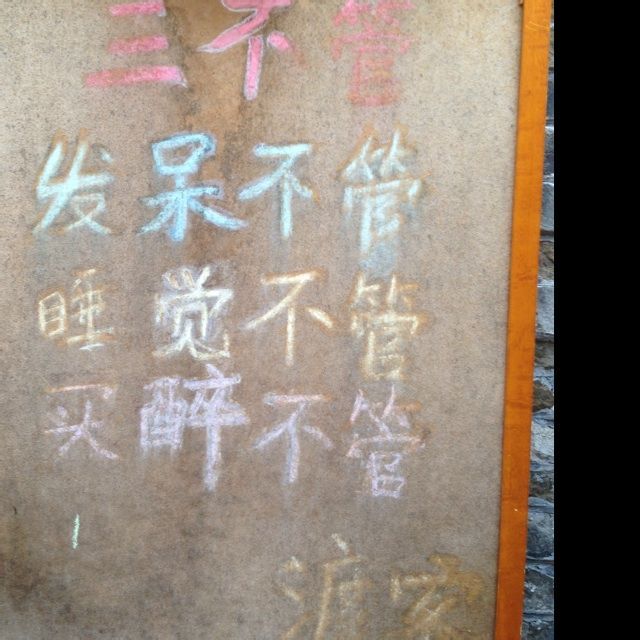 三不管
发呆不管
睡觉不管
买醉不管